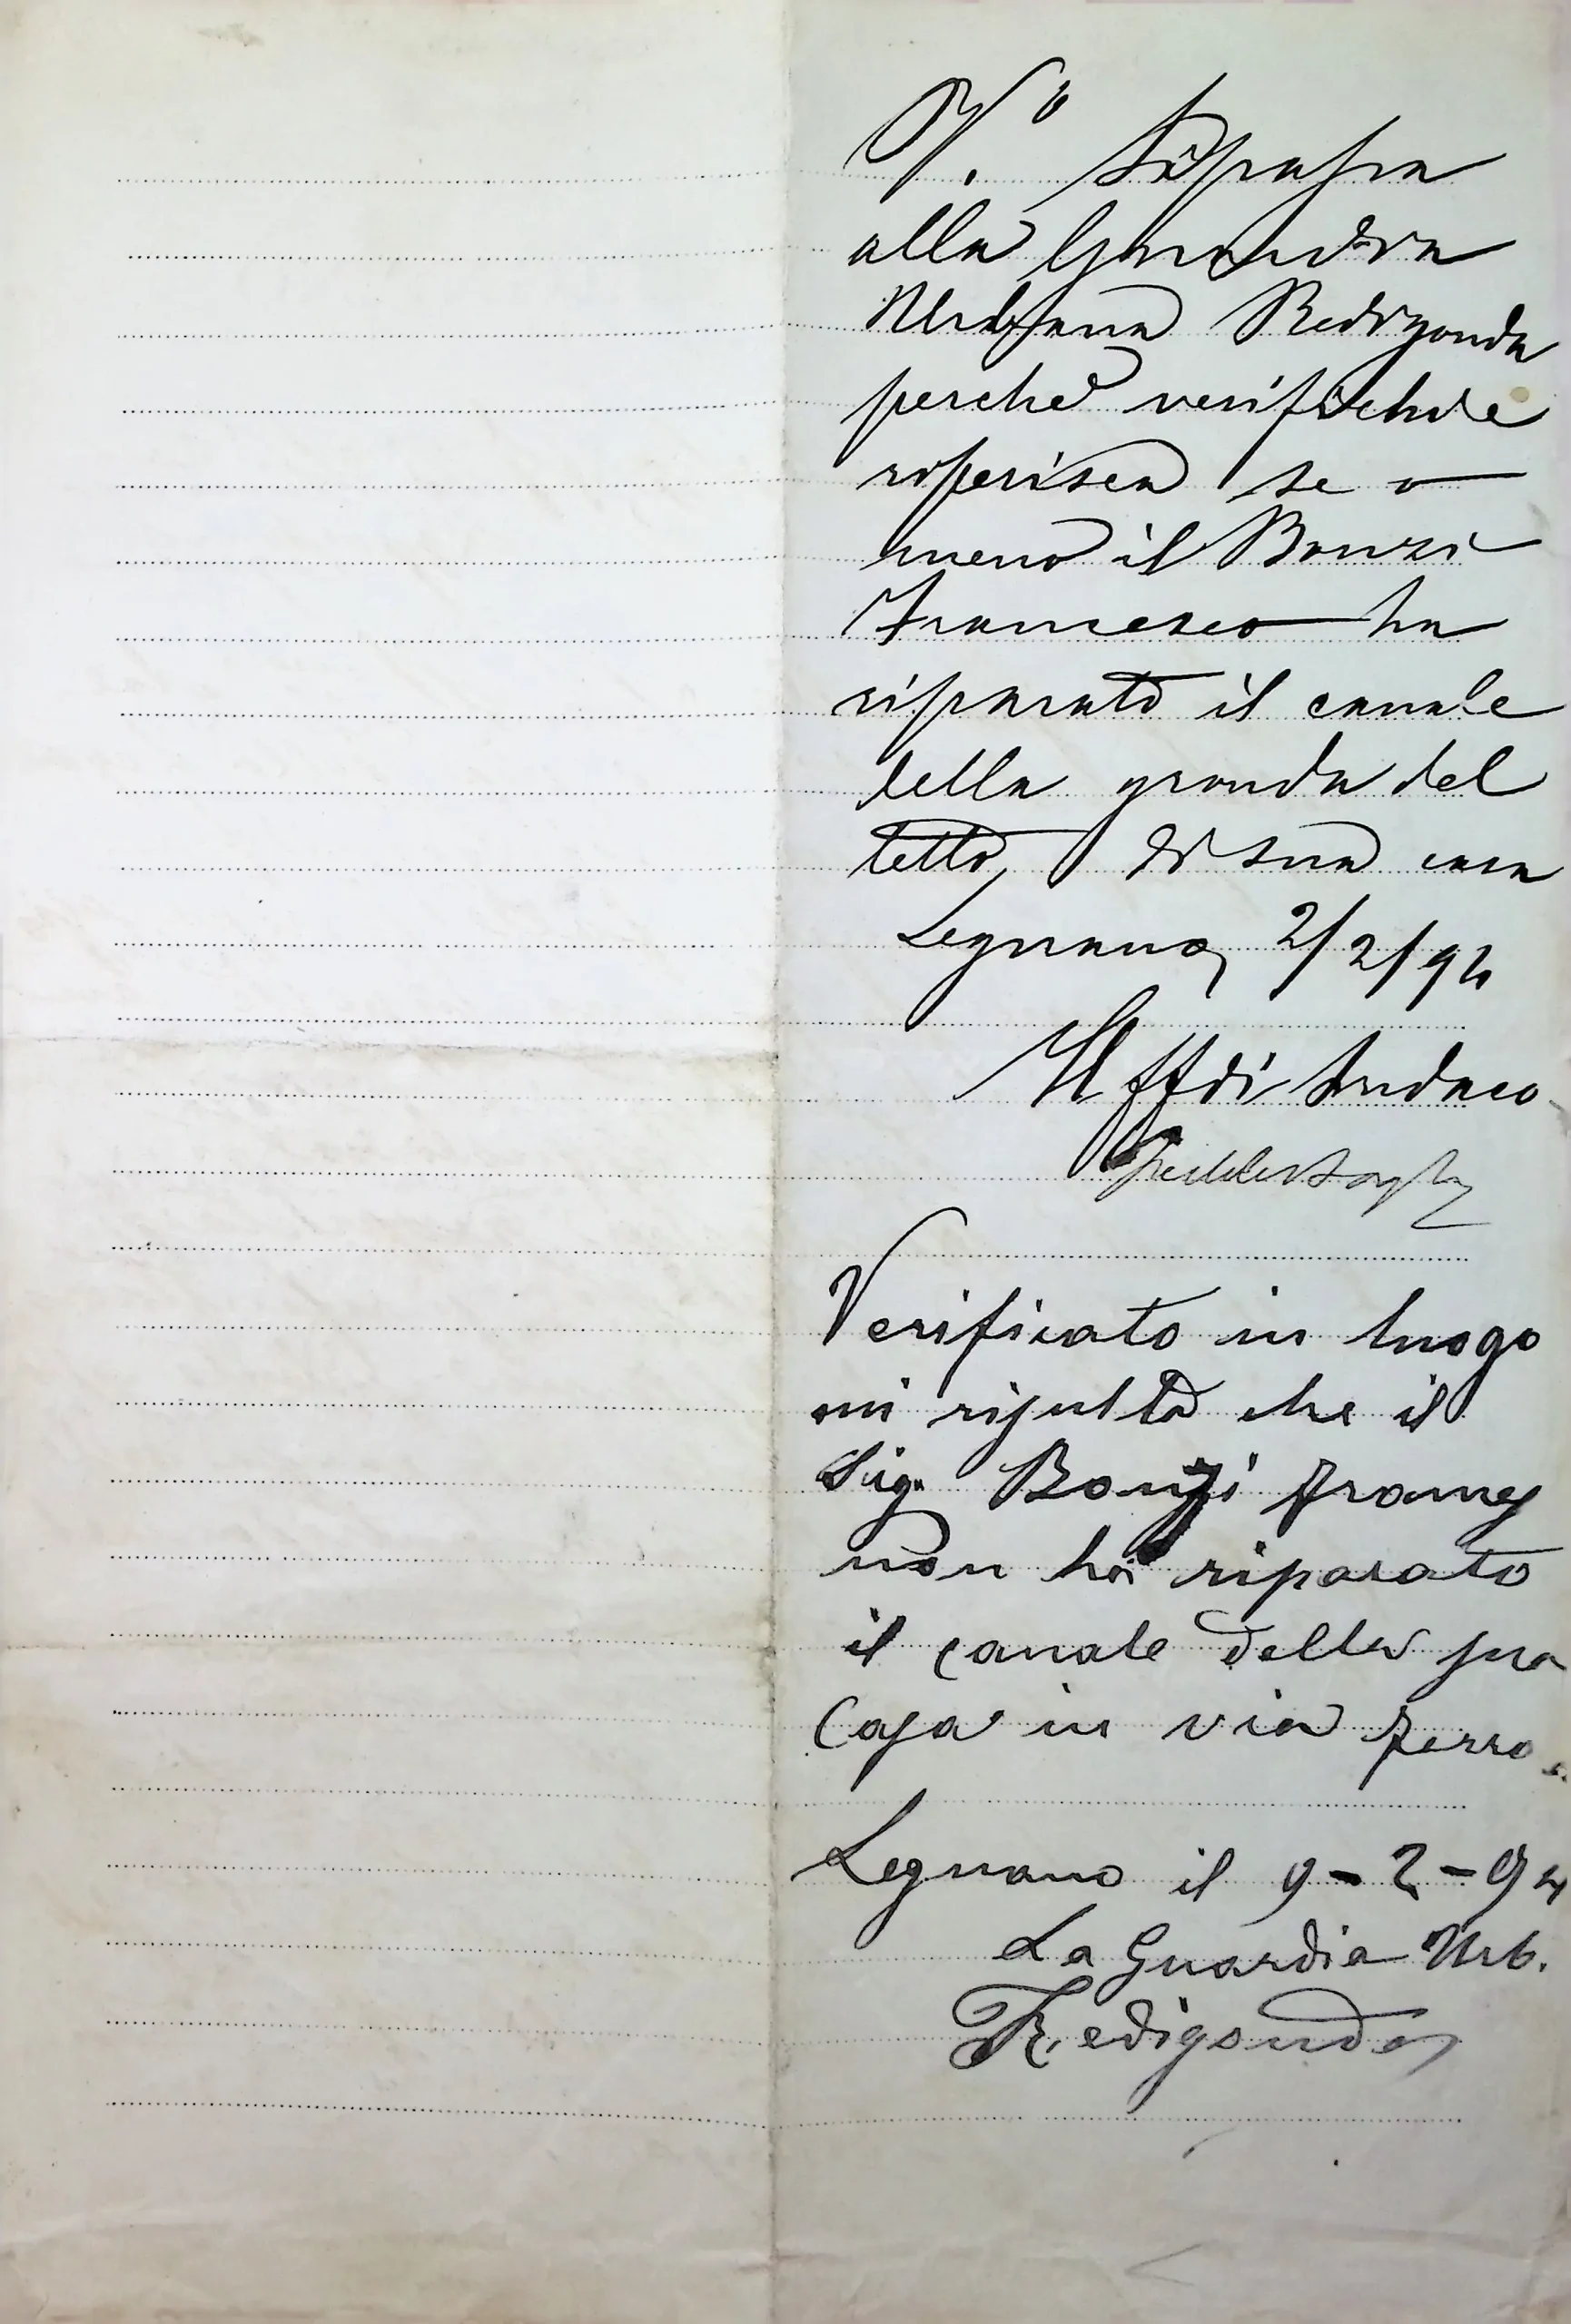 V.o Si passa
alla Guardia
Urbana Redigonda
perchè verifichi e
riferisca se o
meno il Bonzi
Francesco ha
riparato il canale
della gronda del
tetto, di sua casa
Legnano, 2/2/94
Il ff di Sindaco
Verificato in luogo
mi risulta che il
Sig. Bonzi Franc
non ha riparato
il canale della sua
Casa in via Ferro
Legnano il 9-2-94
La Guardia Urb.
Redigonda